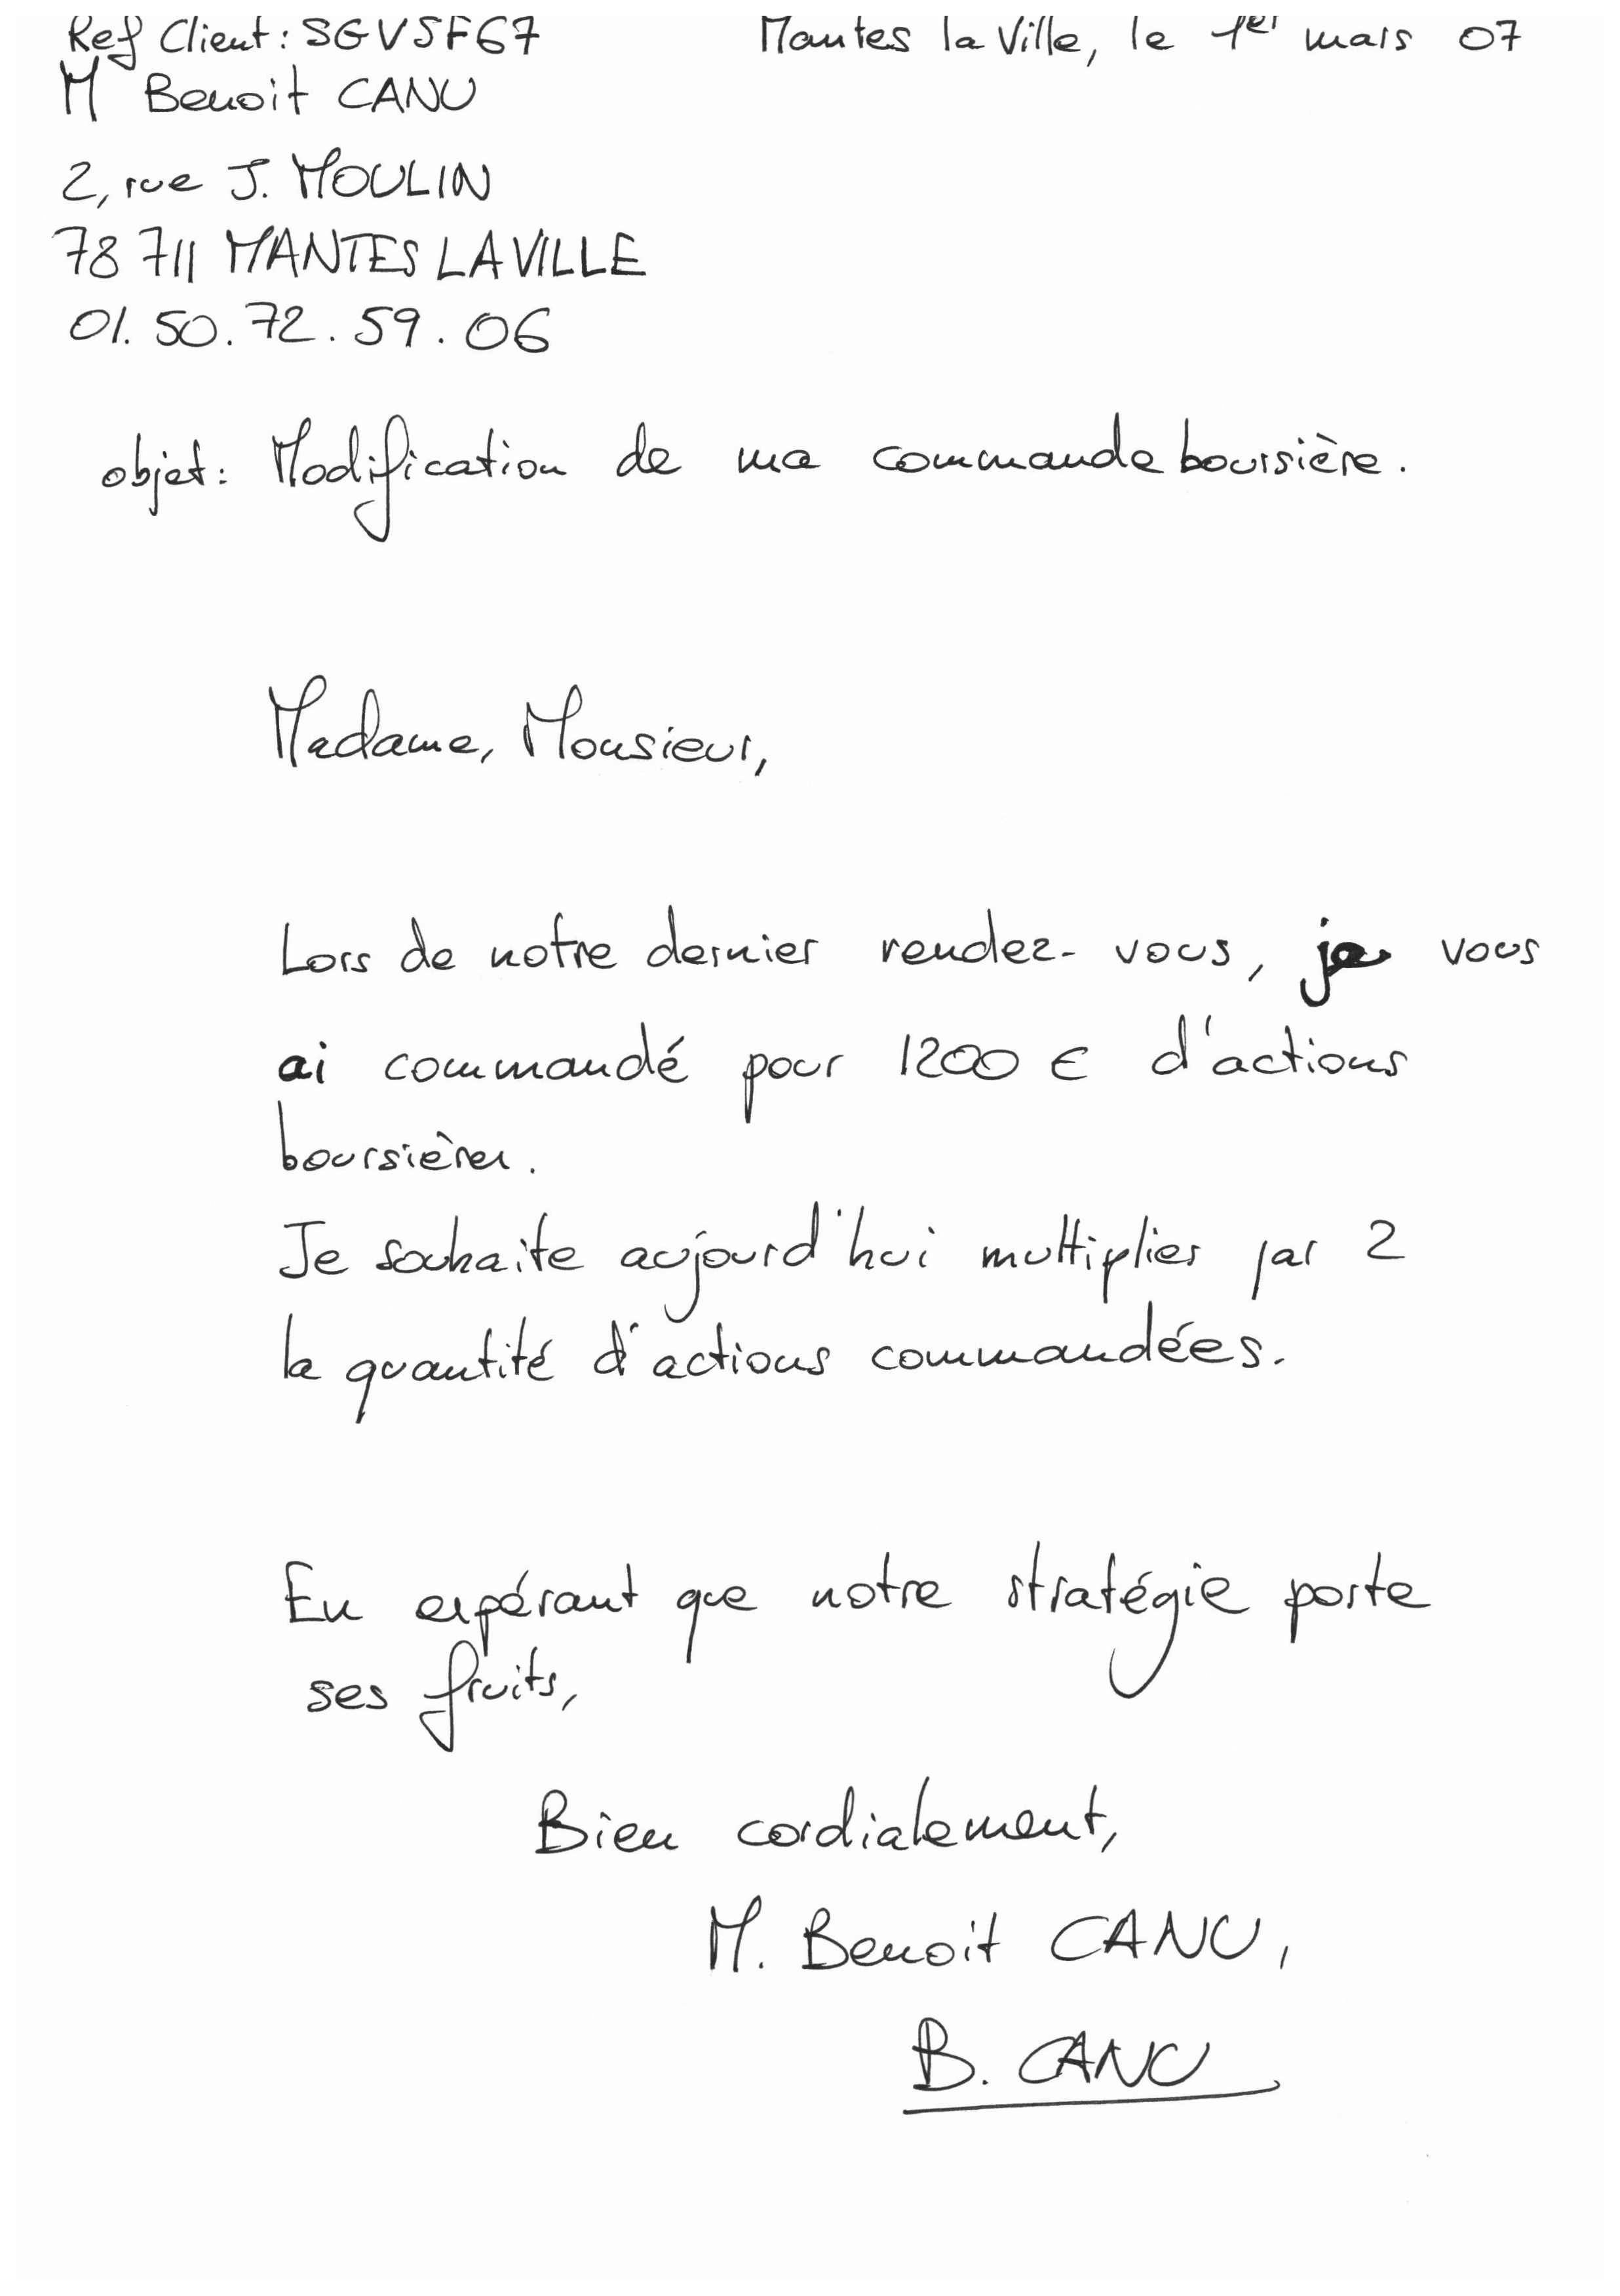 Ref Client : SGVSF67 Mantes la Ville, le 1er mars 07
M Benoit CANU
2, rue J. MOULIN
78 711 MANTES LA VILLE
01. 50. 72. 59. 06
objet : Modification de ma commande boursière.
Madame, Monsieur,
Lors de notre dernier rendez-vous, je vous
ai commandé pour 1200 € d'actions
boursières.
Je souhaite aujourd'hui multiplier par 2
la quantité d'actions commandées.
En espérant que notre stratégie porte
ses fruits,
Bien cordialement,
M. Benoit CANU,
B. CANU